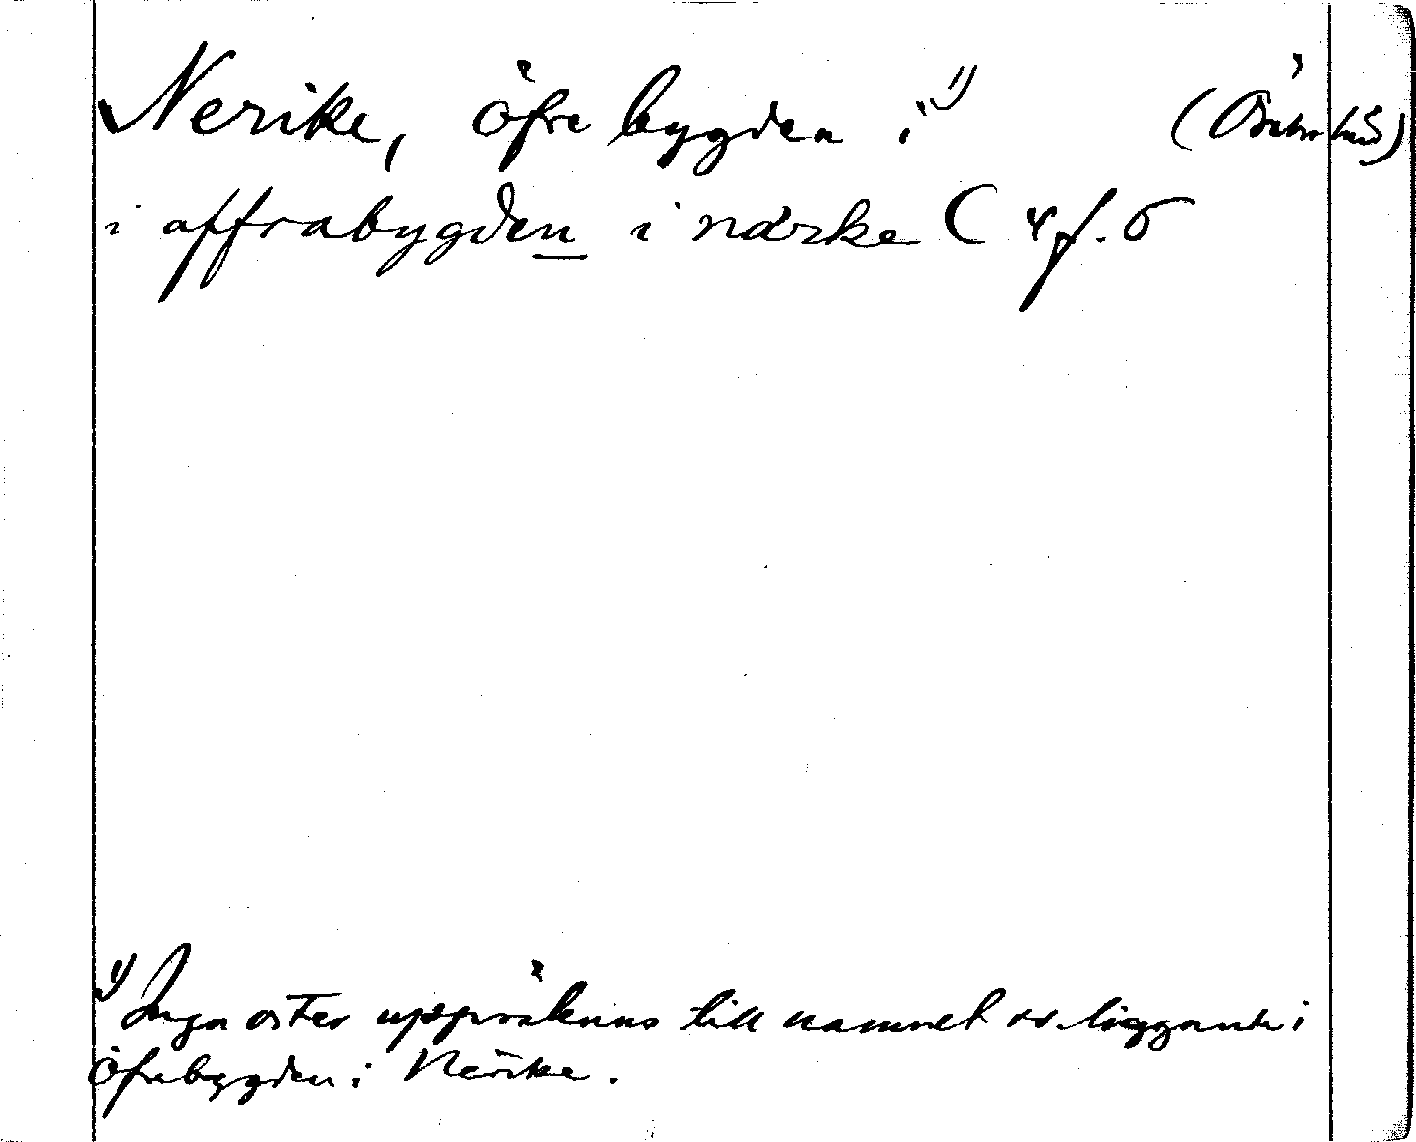 Nerike, öfre bygden i 1)
i offrabygden i närke C 4 f. 6
1) Inga orter uppräknas till namnet ss. liggande i
Öfrebygden i Närike.